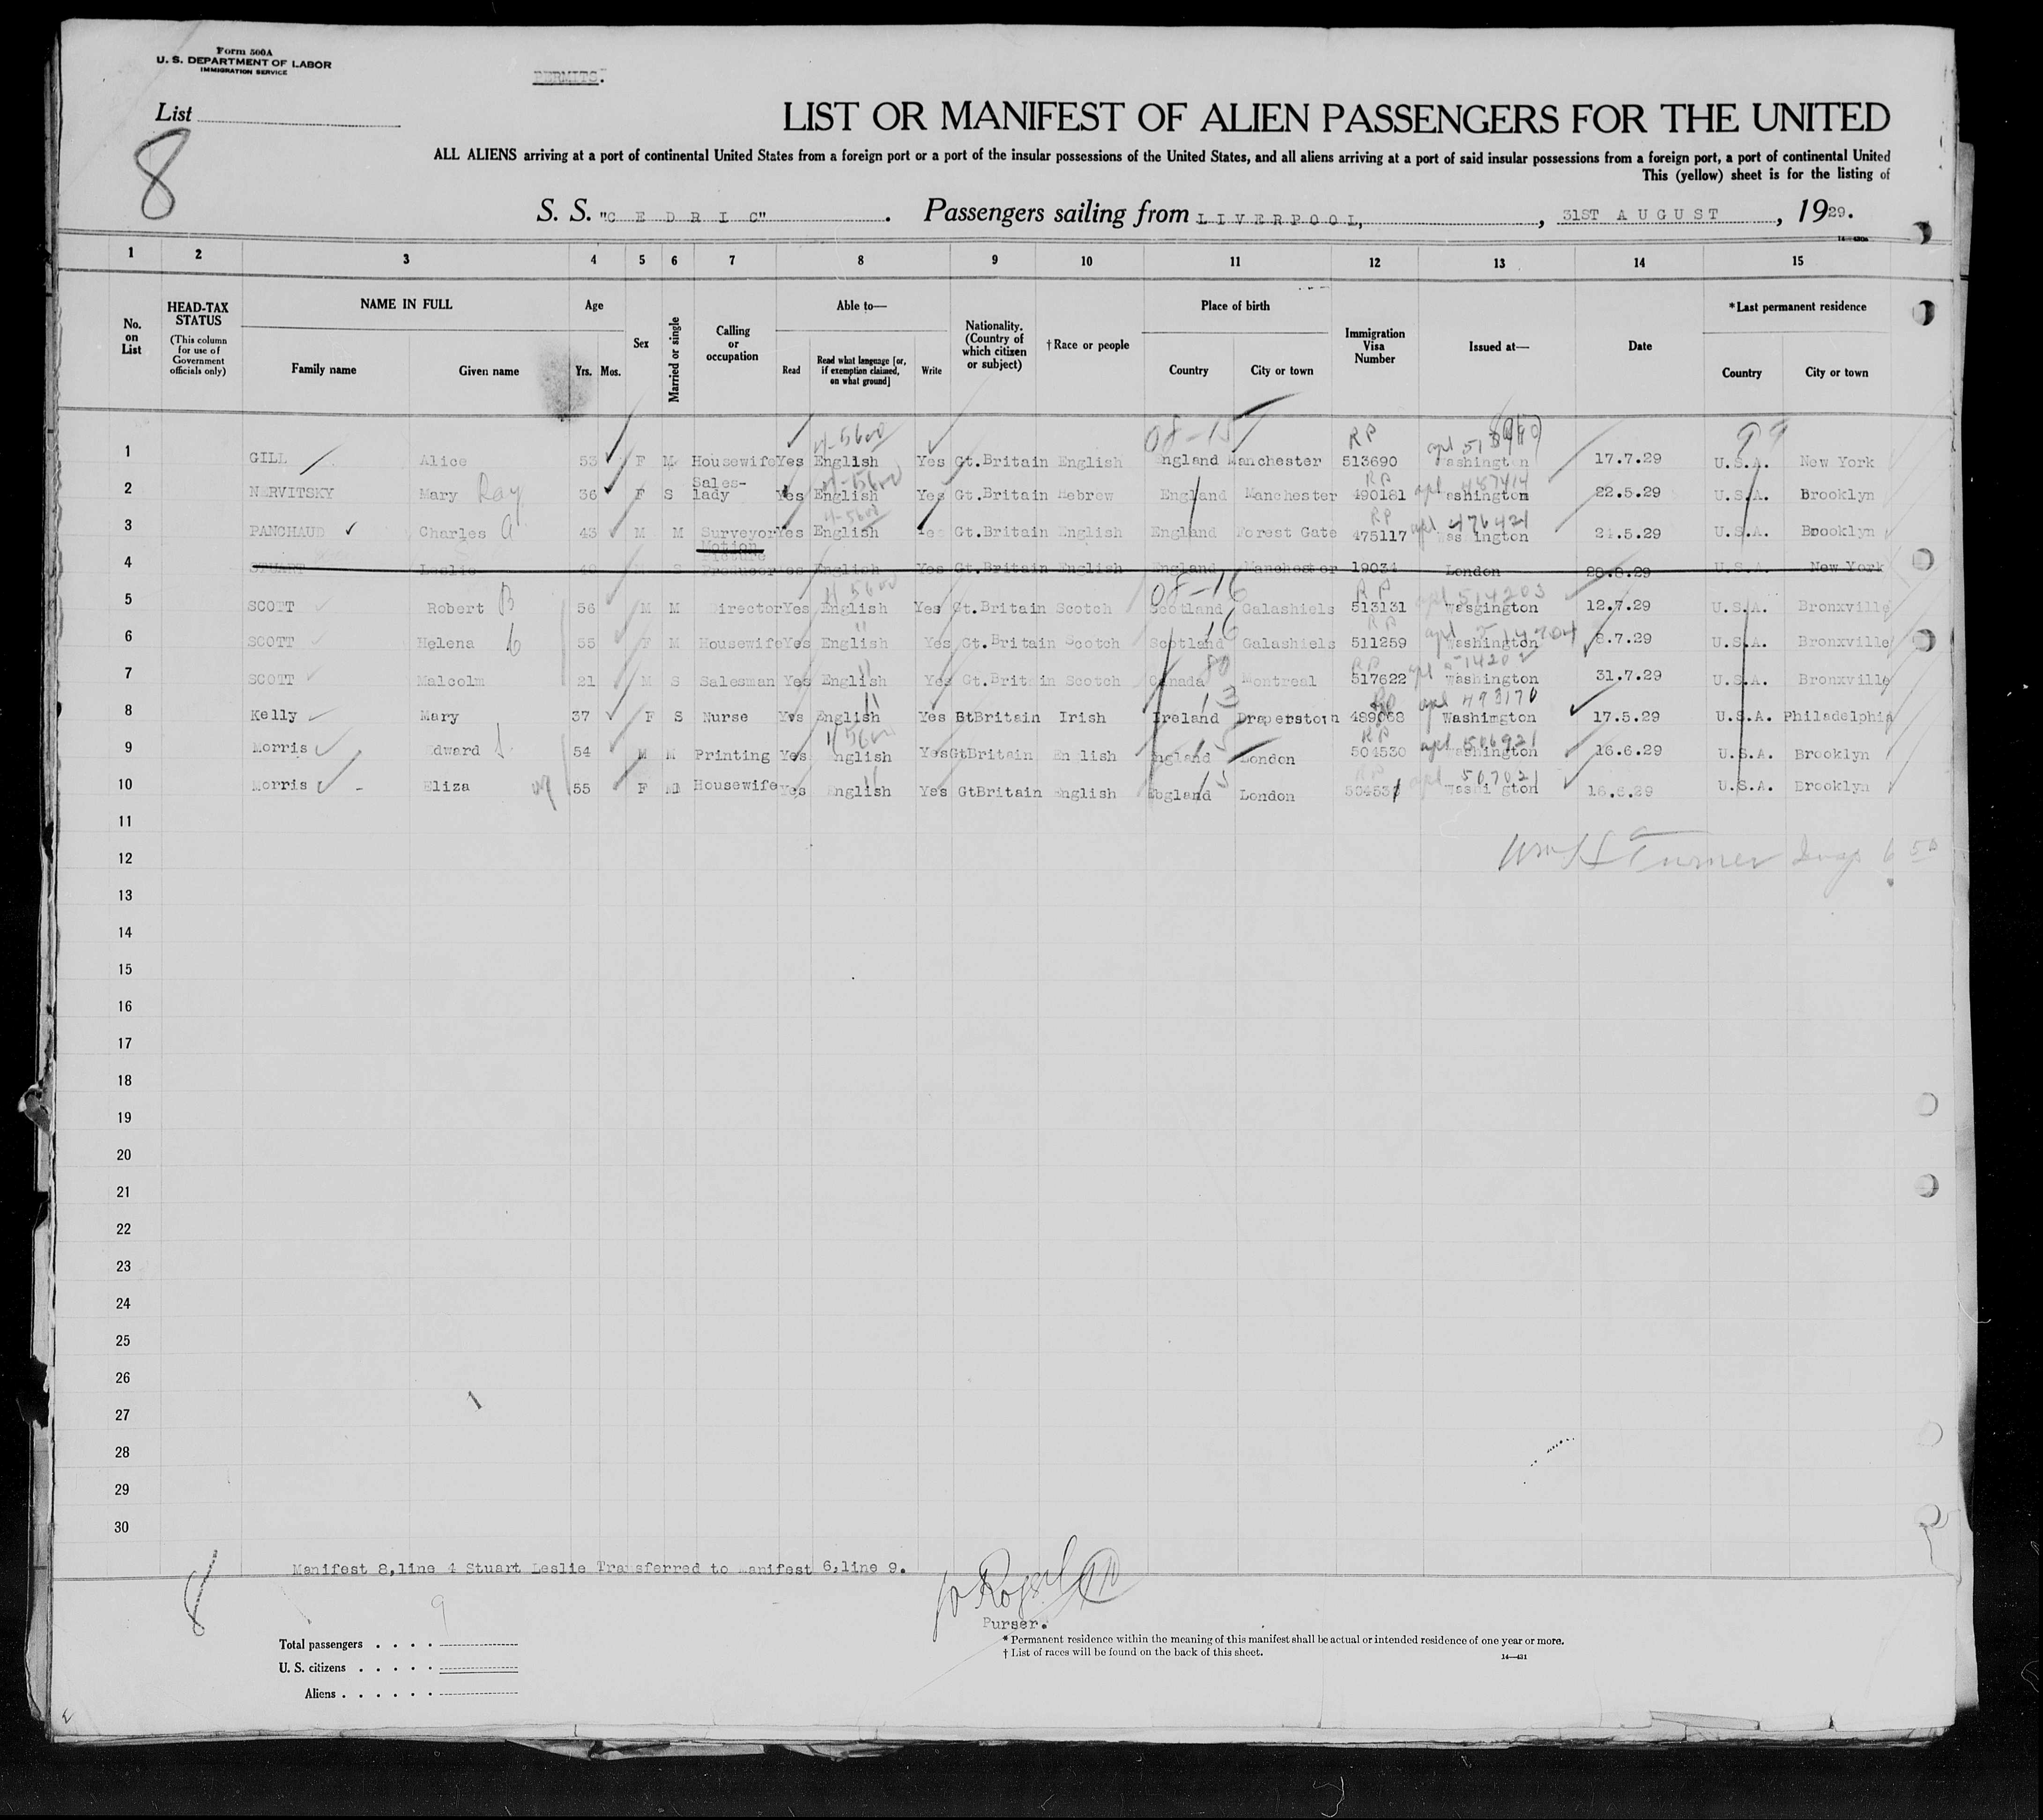 Form 500A
U. S. DEPARTMENT OF LABOR
IMMIGRATION SERVICE
PERMITS.
List
8
LIST OR MANIFEST OF ALIEN PASSENGERS FOR THE UNITED
ALL ALIENS arriving at a port of continental United States from a foreign port or a port of the insular possessions of the United States, and all aliens arriving at a port of said insular possessions from a foreign port, a port of continental United
This (yellow) sheet is for the listing of
S. S. "C E D R I C" . Passengers sailing from LIVERPOOL, , 31ST AUGUST , 1929.
14—430a
1 2 3 4 5 6 7 8 9 10 11 12 13 14 15
No. on List HEAD-TAX STATUS (This column for use of Government officials only) NAME IN FULL Family name Given name Age Yrs. Mos. Sex Married or single Calling or occupation Able to— Read Read what language [or, if exemption claimed, on what ground] Write Nationality. (Country of which citizen or subject) † Race or people Place of birth Country City or town Immigration Visa Number Issued at— Date *Last permanent residence Country City or town
08-15 RP 99
1 GILL Alice 53 F M Housewife Yes English Yes Gt.Britain English England Manchester 513690 Washington 17.7.29 U.S.A. New York
4-5600 RP apl 487414
2 NERVITSKY Mary Ray 36 F S Sales-lady Yes English Yes Gt.Britain Hebrew England Manchester 490181 Washington 22.5.29 U.S.A. Brooklyn
4-5600 RP apl 476421
3 PANCHAUD Charles A 43 M M Surveyor Yes English Yes Gt.Britain English England Forest Gate 475117 Was ington 5.29 U.S.A. Brooklyn
4 STUART Leslie 40 M S Motion Picture Producer Yes English Yes Gt.Britain English England Manchester 19034 London 28.8.29 U.S.A. New York
5600 08-16 RP apl 514203
5 SCOTT Robert B 56 M M Director Yes English Yes Gt.Britain Scotch Scotland Galashiels 513131 Wasgington 12.7.29 U.S.A. Bronxville
" 16 RP apl
6 SCOTT Helena 55 F M Housewife Yes English Yes Gt.Britain Scotch Scotland Galashiels 511259 Washington 8.7.29 U.S.A. Bronxville
" 80 RP apl
7 SCOTT Malcolm 21 M S Salesman Yes English Yes Gt.Britain Scotch Canada Montreal 517622 Washington 31.7.29 U.S.A. Bronxville
" 13 RP apl 493170
8 Kelly Mary 37 F S Nurse Yes English Yes GtBritain Irish Ireland Draperstown 489068 Washington 17.5.29 U.S.A. Philadelphia
5600 15 RP apl 506921
9 Morris Edward J. 54 M M Printing Yes English Yes GtBritain En lish England London 504530 Washington 16.6.29 U.S.A. Brooklyn
" 15 RP apl 507021
10 Morris Eliza 55 F M Housewife Yes English Yes GtBritain English England London 504531 Washi gton 16.6.29 U.S.A. Brooklyn
11
Turner
12
13
14
15
16
17
18
19
20
21
22
23
24
25
26
27
28
29
30
Manifest 8,line 4 Stuart Leslie Transferred to manifest 6,line 9.
8
9
Purser.
Total passengers . . . .
U. S. citizens . . . . .
Aliens . . . . . .
* Permanent residence within the meaning of this manifest shall be actual or intended residence of one year or more.
† List of races will be found on the back of this sheet.
14—431